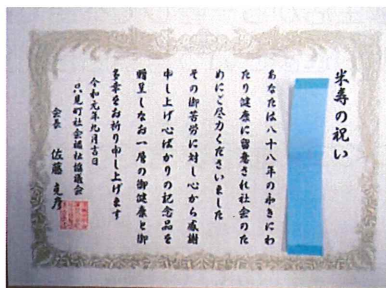 米寿の祝い
あなたは八十八年の永きにわ
たり健康に留意され社会のた
めにご尽力くださいました
その御苦労に対し心から感謝
申し上げ心ばかりの記念品を
贈呈しなお一層の御健康と御
多幸をお祈り申し上げます
令和元年九月吉日
只見町社会福祉協議会
会長 佐藤克彦